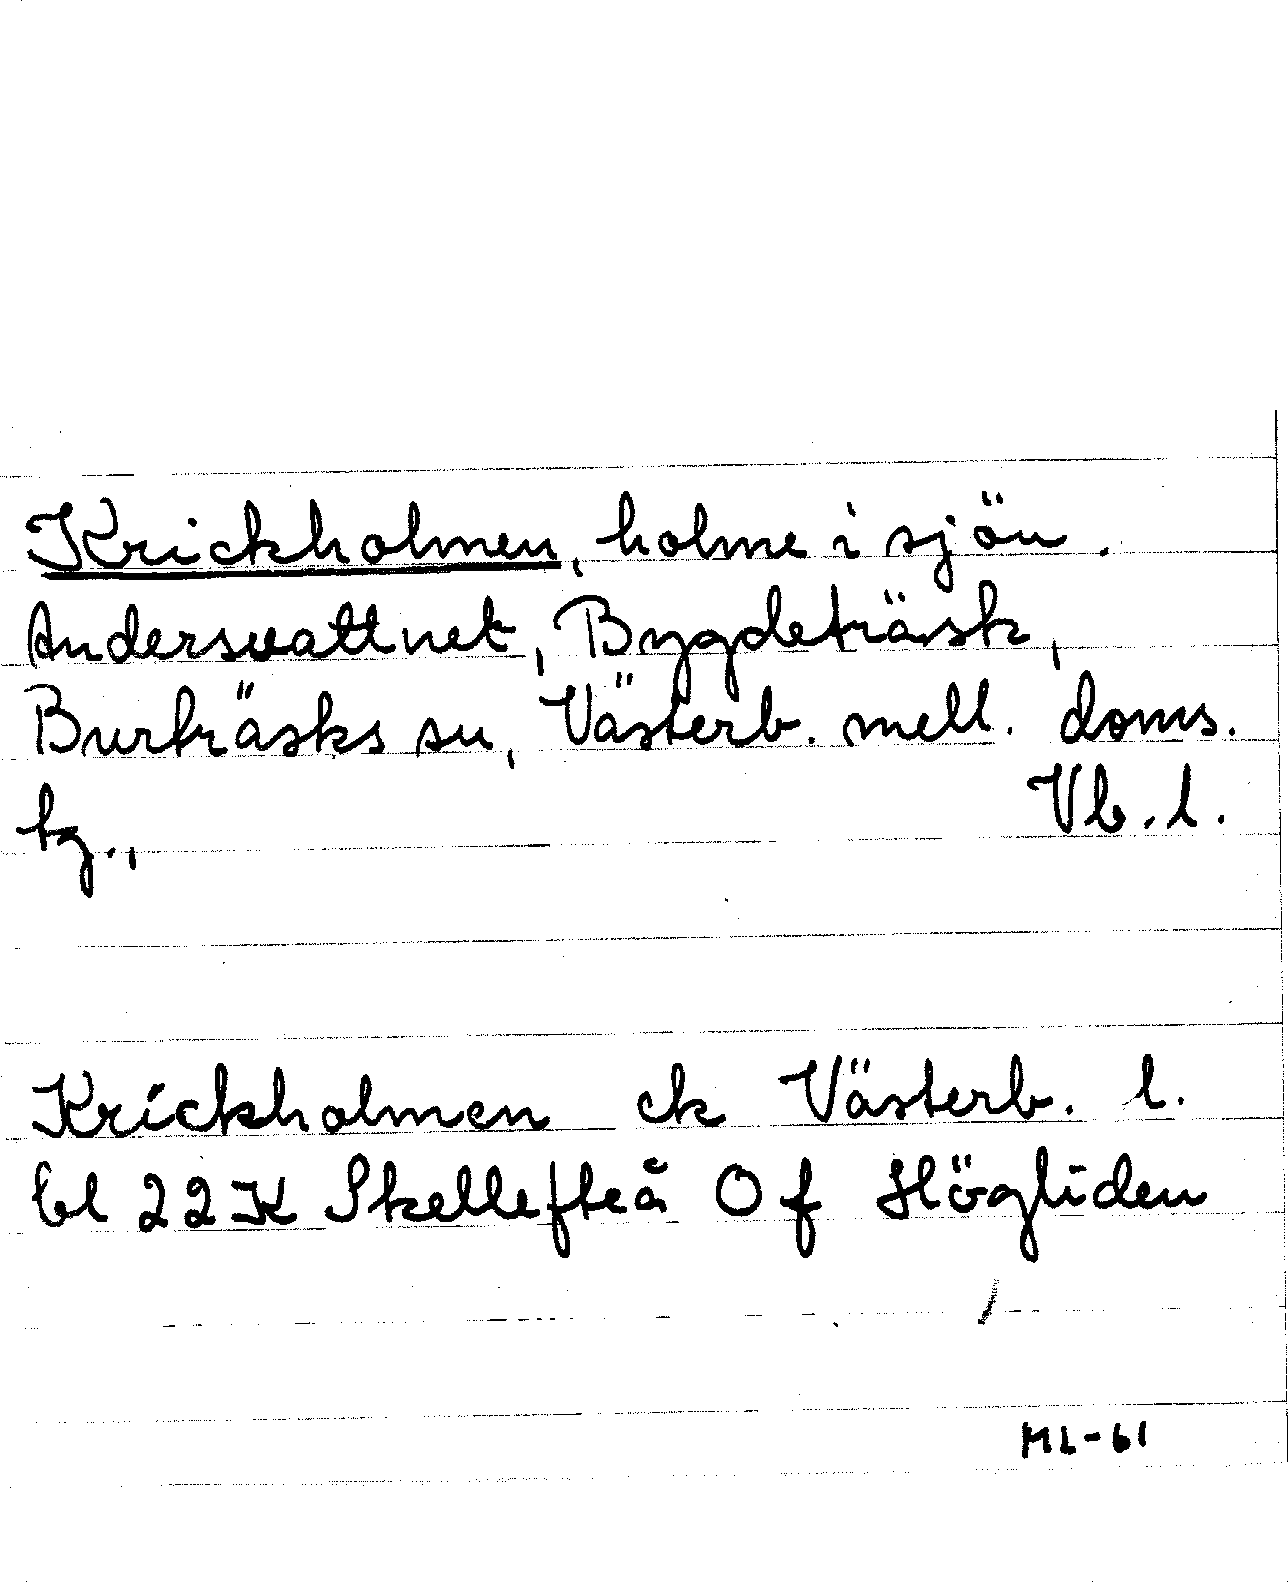 Krickholmen, holme i sjön.
Andersvattnet, Bygdeträsk,
Burträsks sn, Västerb. mell. doms.
tg.,
Vb.l.
Krickholmen ek Västerb. l.
bl 22K Skellefteå 0f Högliden
ML-61